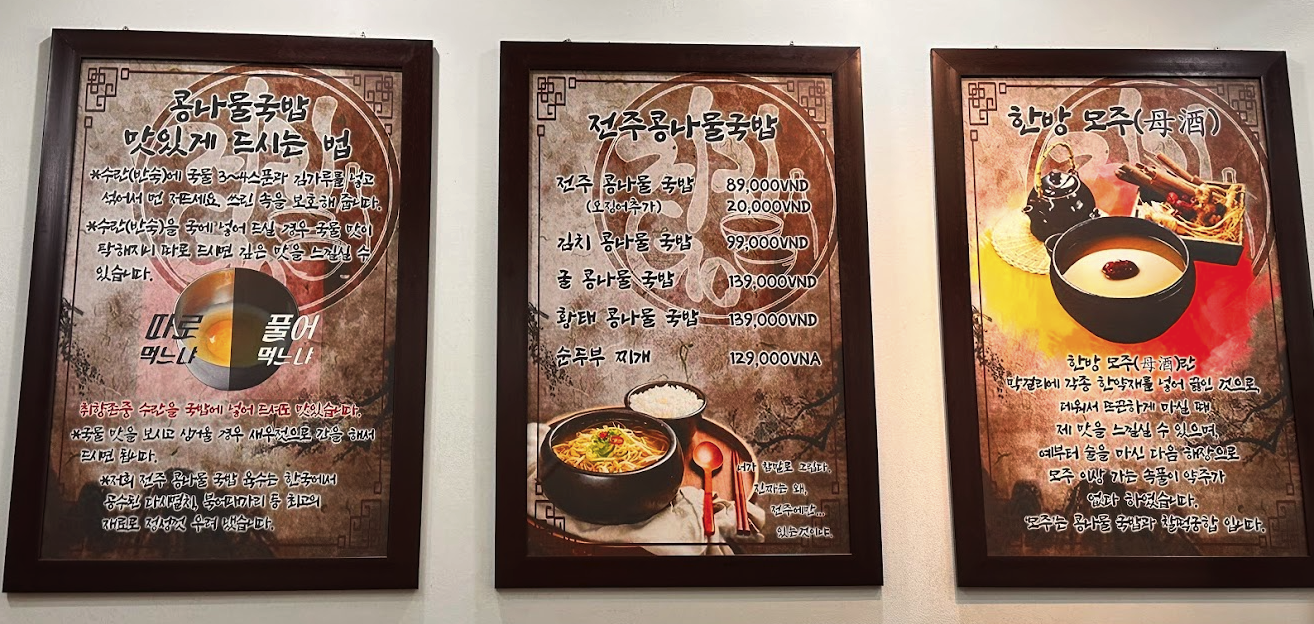 콩나물국밥
맛있게 드시는 법
*수란(반숙)에 국물 3~4스푼과 김가루를 넣고
섞어서 먼저 드세요. 쓰린 속을 보호해 줍니다.
*수란(반숙)을 국에 넣어 드실 경우 국물 맛이
탁해지니 따로 드시면 깊은 맛을 느끼실 수
있습니다.
따로 먹느냐
풀어 먹느냐
취향존중 수란을 국밥에 넣어 드셔도 맛있습니다.
*국물 맛을 보시고 싱거울 경우 새우젓으로 간을 해서
드시면 됩니다.
*저희 전주 콩나물 국밥 육수는 한국에서
공수된 다시멸치, 북어대가리 등 최고의
재료로 정성껏 우려 냈습니다.
전주콩나물국밥
전주 콩나물 국밥 89,000VND
(오징어추가) 20,000VND
김치 콩나물 국밥 99,000VND
굴 콩나물 국밥 139,000VND
황태 콩나물 국밥 139,000VND
순두부 찌개 129,000VNA
네가 한말로 그립다.
진짜는 왜,
전주에만...
있는것이냐.
한방 모주(母酒)
한방 모주(母酒)란
막걸리에 각종 한약재를 넣어 끓인 것으로,
데워서 뜨끈하게 마실 때,
제 맛을 느끼실 수 있으며,
예부터 술을 마신 다음 해장으로
모주 이상 가는 속풀이 약주가
없다 하였습니다.
모주는 콩나물 국밥과 찰떡궁합 입니다.